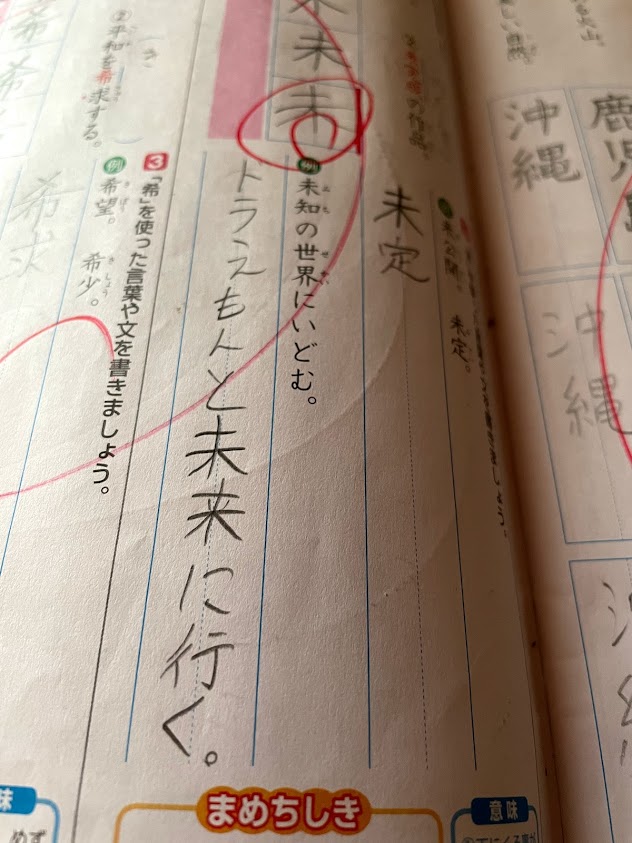 鹿児島
沖縄
沖縄
未公開。 未定。
未定
例 未知の世界にいどむ。
未未
トラえもんと未来に行く。
3 「希」を使った言葉や文を書きましょう。
例 希望。 希少。
②平和を希求する。
希求
希希
意味
まめちしき